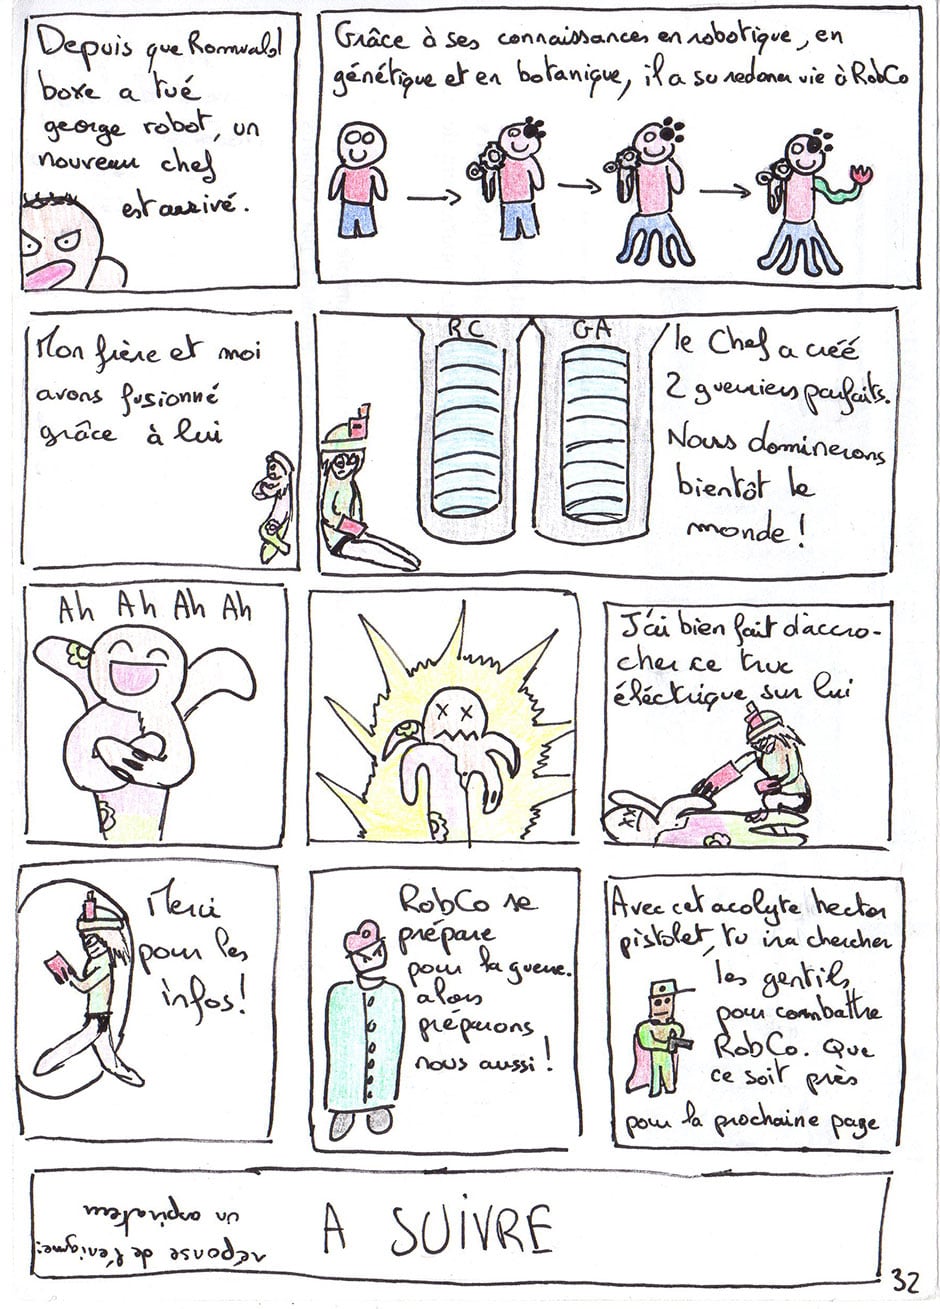 Depuis que Romuald
boxe a tué
george robot, un
nouveau chef
est arrivé.
Grâce à ses connaissances en robotique, en
génétique et en botanique, il a su redoner vie à RobCo
Mon frère et moi
avons fusionné
grâce à lui
RC
GA
le Chef a créé
2 guerriers parfaits.
Nous dominerons
bientôt le
monde !
Ah Ah Ah Ah
J'ai bien fait d'accro-
cher ce truc
éléctrique sur lui
Merci
pour les
infos !
RobCo se
prépare
pour la guerre.
alors
préparons
nous aussi !
Avec cet acolyte, hector
pistolet, tu ira chercher
les gentils
pour combattre
RobCo. Que
ce soit près
pour la prochaine page
réponse de l'énigme:
un aspirateur
A SUIVRE
32